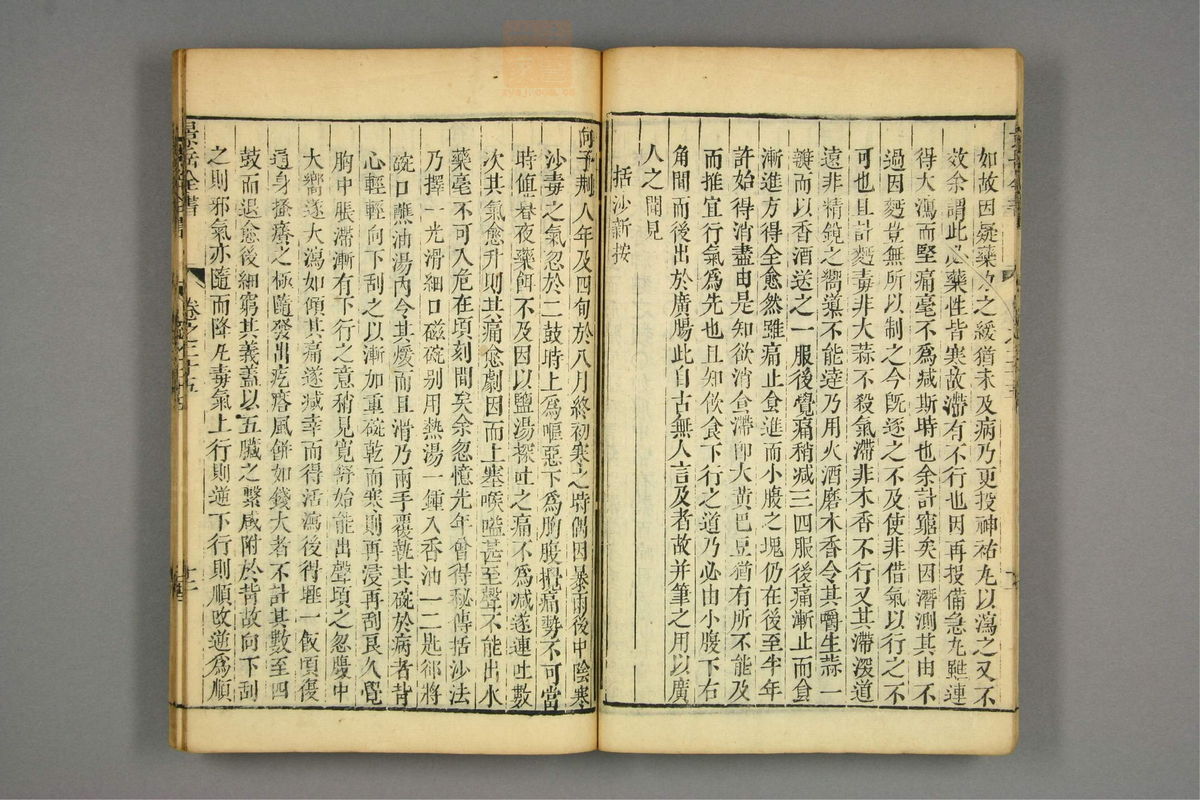 如故因疑藥力之緩猶未及病乃更投神祐丸以瀉之又不
效余謂此必藥性皆寒故滯有不行也因再投備急丸雖連
得大瀉而堅痛毫不為減斯時也余計窮矣因潛測其由不
過因麪豈無所以制之今既逐之不及使非借氣以行之不
可也且計麪毒非大蒜不殺氣滯非木香不行又其滯深道
遠非精銳之嚮導不能達乃用火酒磨木香令其嚼生蒜一
瓣而以香酒送之一服後覺痛稍減三四服後痛漸止而食
漸進方得全愈然雖痛止食進而小腹之塊仍在後至半年
許始得消盡由是知欲消食滯即大黃巴豆猶有所不能及
而推宜行氣為先也且知飲食下行之道乃必由小腹下右
角間而後出於廣腸此自古無人言及者故并筆之用以廣
人之聞見
括沙新按
向予荊人年及四旬於八月終初寒之時偶因暴雨後中陰寒
沙毒之氣忽於二鼓時上為嘔惡下為胸腹攪痛勢不可當
時值暮夜藥餌不及因以鹽湯探吐之痛不為減遂連吐數
次其氣愈升則其痛愈劇因而上塞喉嗌甚至聲不能出水
藥毫不可入危在頃刻間矣余忽憶先年曾得秘傳括沙法
乃擇一光滑細口磁碗別用熱湯一鍾入香油一二匙却將
碗口蘸油湯內令其煖而且滑乃兩手覆執其碗於病者背
心輕輕向下刮之以漸加重碗乾而寒則再浸再刮良久覺
胸中脹滯漸有下行之意稍見寬舒始能出聲頃之忽腹中
大響遂大瀉如傾其痛遂減幸而得活瀉後得睡一飯頃復
遍身搔癢之極隨發出疙瘩風餅如錢大者不計其數至四
鼓而退愈後細窮其義蓋以五臟之繫咸附於背故向下刮
之則邪氣亦隨而降凡毒氣上行則逆下行則順改逆為順
景岳全書
卷之二十五